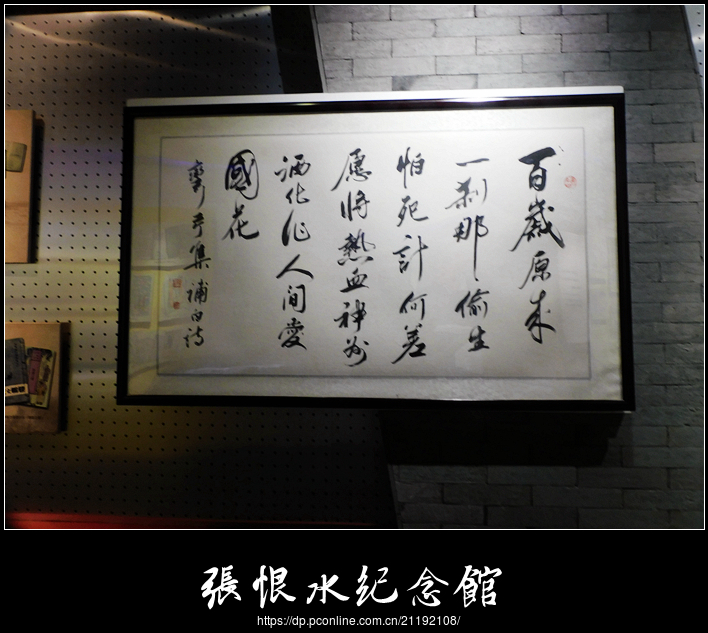 百歲原來
一刹那偷生
怕死計何差
愿将熱血神州
洒化作人间愛
國花
集補白诗
張恨水纪念館
https://dp.pconline.com.cn/21192108/